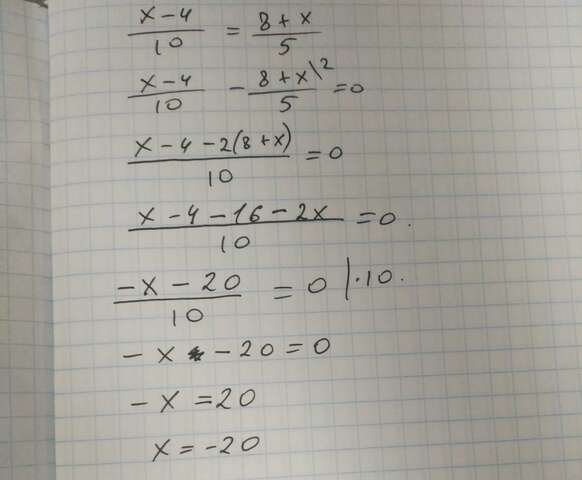 x-4/10 = 8+x/5
x-4/10 - 8+x\2/5 = 0
x-4-2(8+x)/10 = 0
x-4-16-2x/10 = 0.
-x-20/10 = 0 |·10.
-x -20=0
-x=20
x=-20